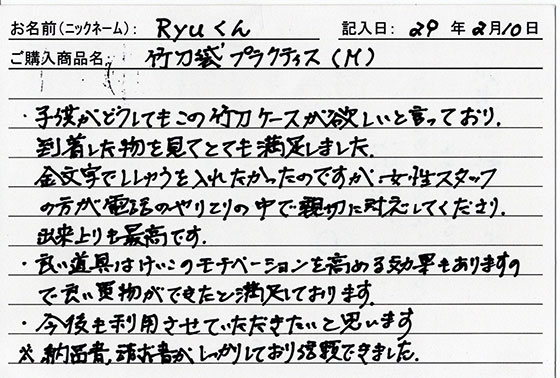 お名前(ニックネーム): Ryuくん 記入日: 29年2月10日
ご購入商品名: 竹刀袋プラクティス(M)
・子供がどうしてもこの竹刀ケースが欲しいと言っており.
到着した物を見てとても満足しました.
金文字でししゅうを入れたかったのですが、女性スタッフ
の方が電話のやりとりの中で親切に対応してくださり.
出来上りも最高です.
・良い道具はけいこのモチベーションを高める効果もありますの
で良い買物ができたと満足しております.
・今後も利用させていただきたいと思います
※納品書,請求書がしっかりしており信頼できました.